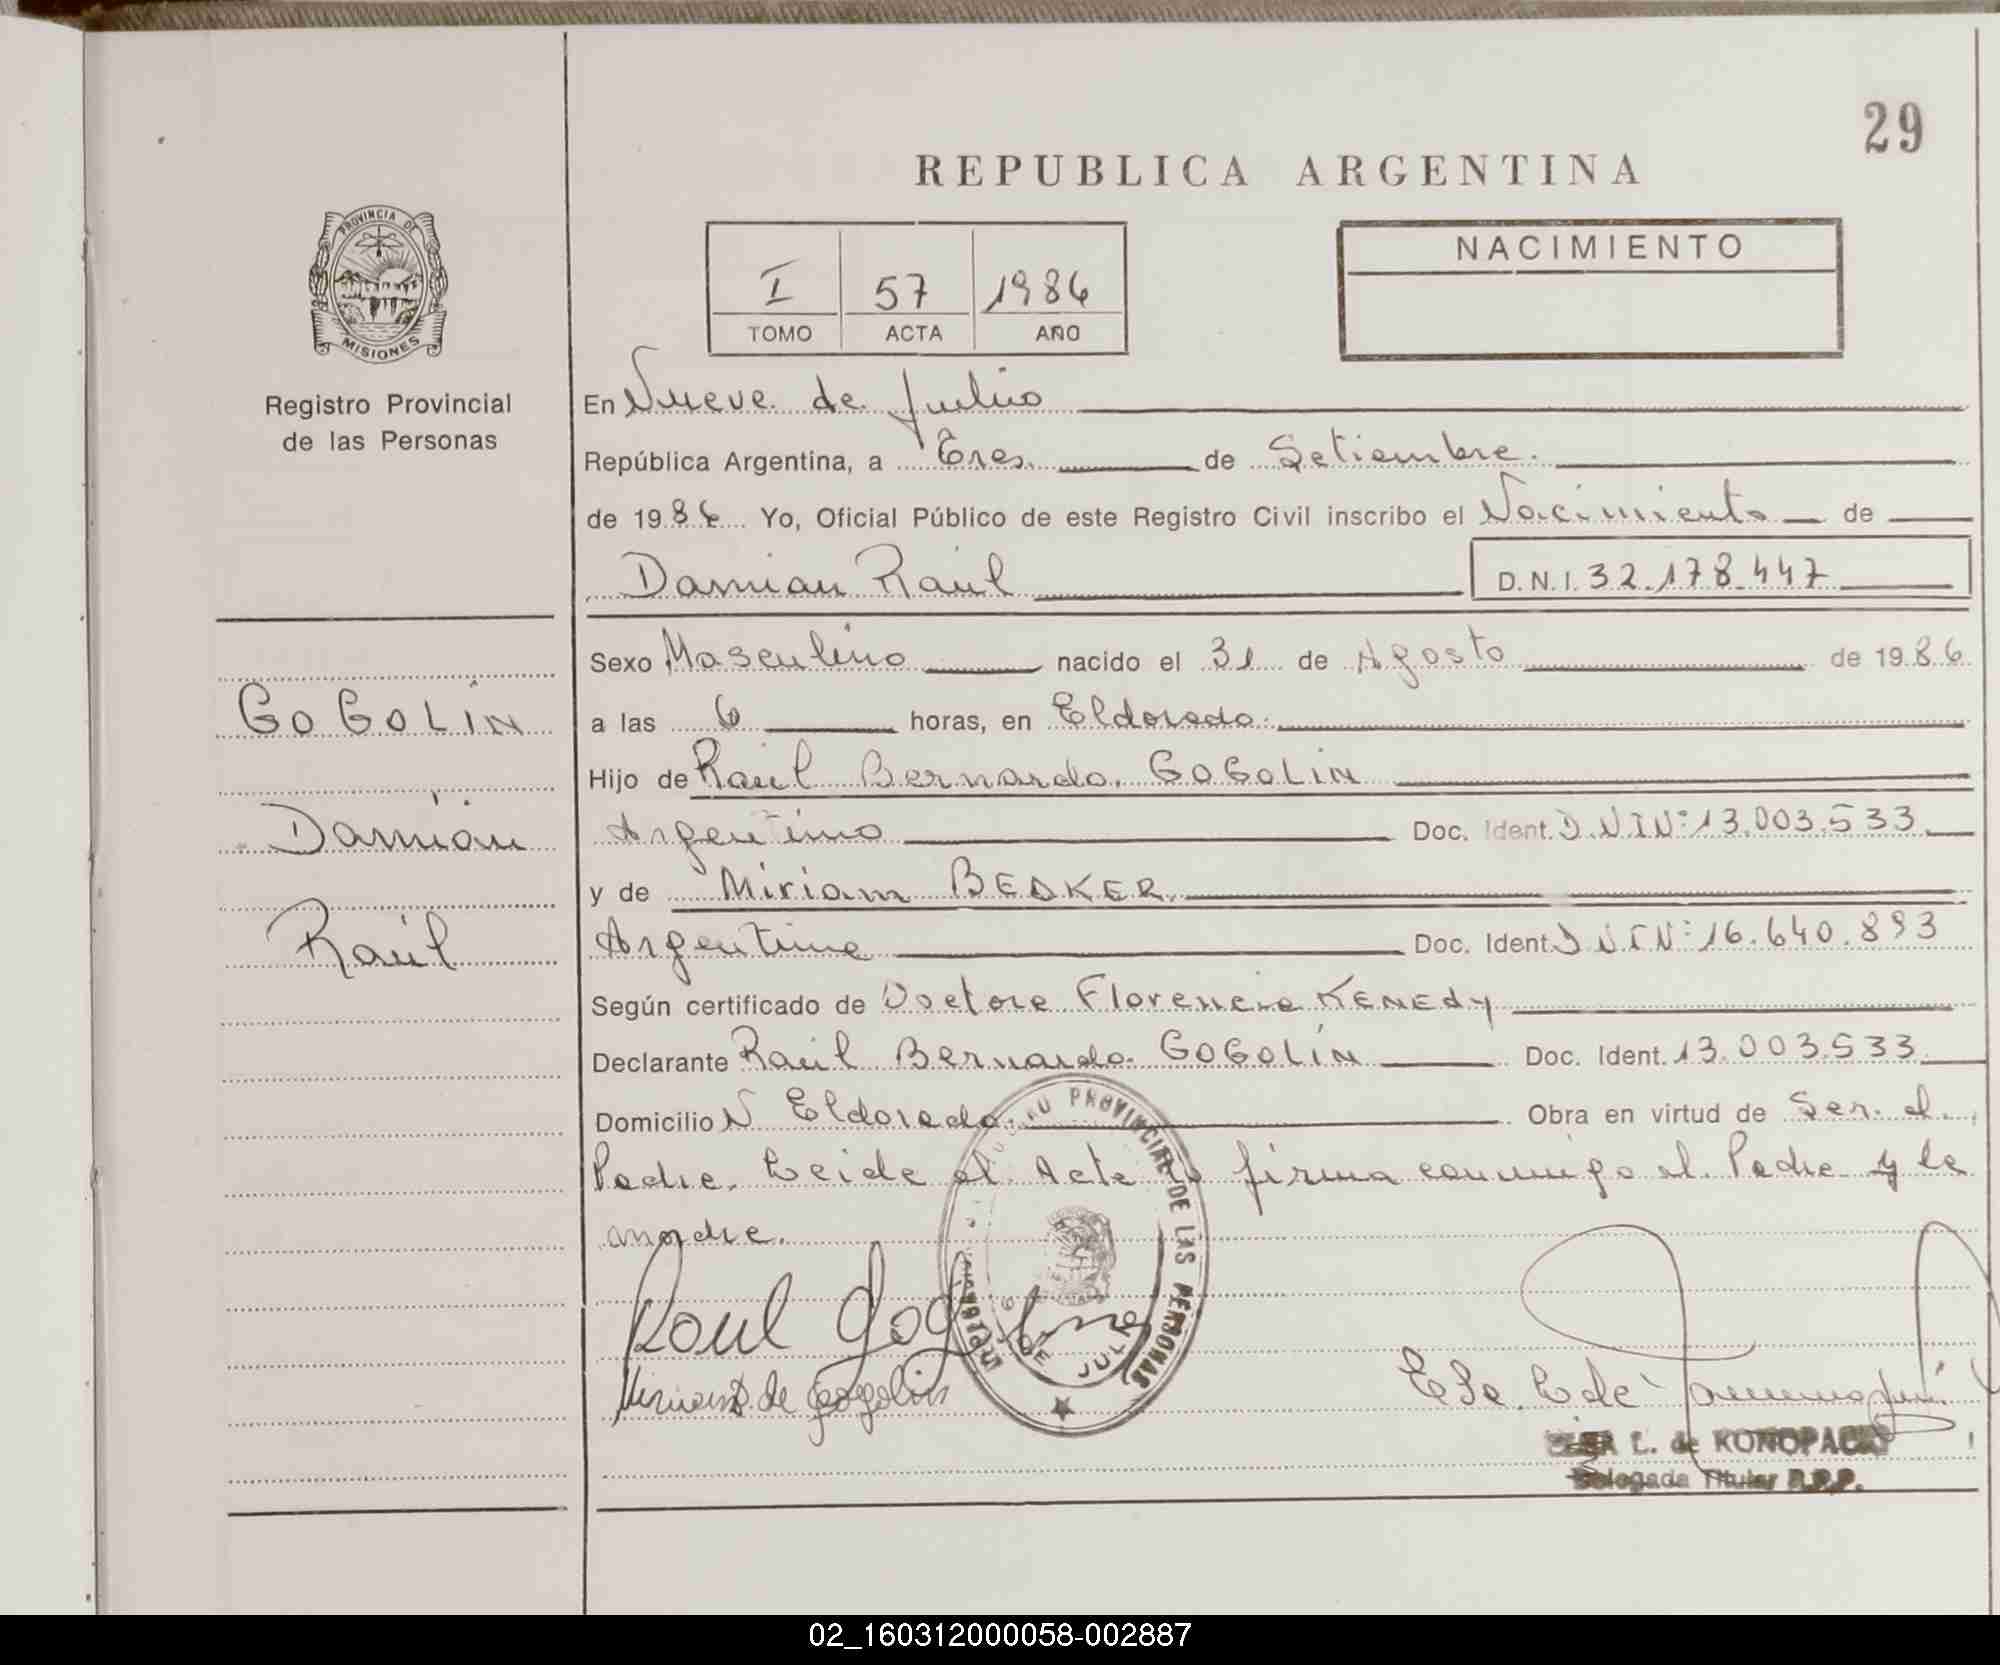 29
REPUBLICA ARGENTINA
PROVINCIA DE
MISIONES
Registro Provincial
de las Personas
I 57 1986
TOMO ACTA AÑO
NACIMIENTO
En Nueve de Julio
República Argentina, a Tres de Setiembre.
de 1986 Yo, Oficial Público de este Registro Civil inscribo el Nacimiento de
Damian Raúl D.N.I. 32.178.447
GOGOLIN
Damián
Raúl
Sexo Masculino nacido el 31 de Agosto de 1986
a las 6 horas, en Eldorado.
Hijo de Raúl Bernardo GOGOLIN
Argentino Doc. Ident. D.N.I Nº 13.003.533
y de Miriam BEDKER
Argentina Doc. Ident. D N I Nº 16.640.893
Según certificado de Doctora Florencia KENEDY
Declarante Raúl Bernardo GOGOLIN Doc. Ident. 13.003.533
Domicilio N Eldorado. Obra en virtud de Ser el
Padre. Leida el Acta la firma conmigo el Padre y la
madre.
PROVINCIAL DE LAS PERSONAS
9 DE JULIO
Raul Gogolin
Miriam B. de Gogolin
L. de KONOPACKI
Delegada Titular R.P.P.
02_160312000058-002887